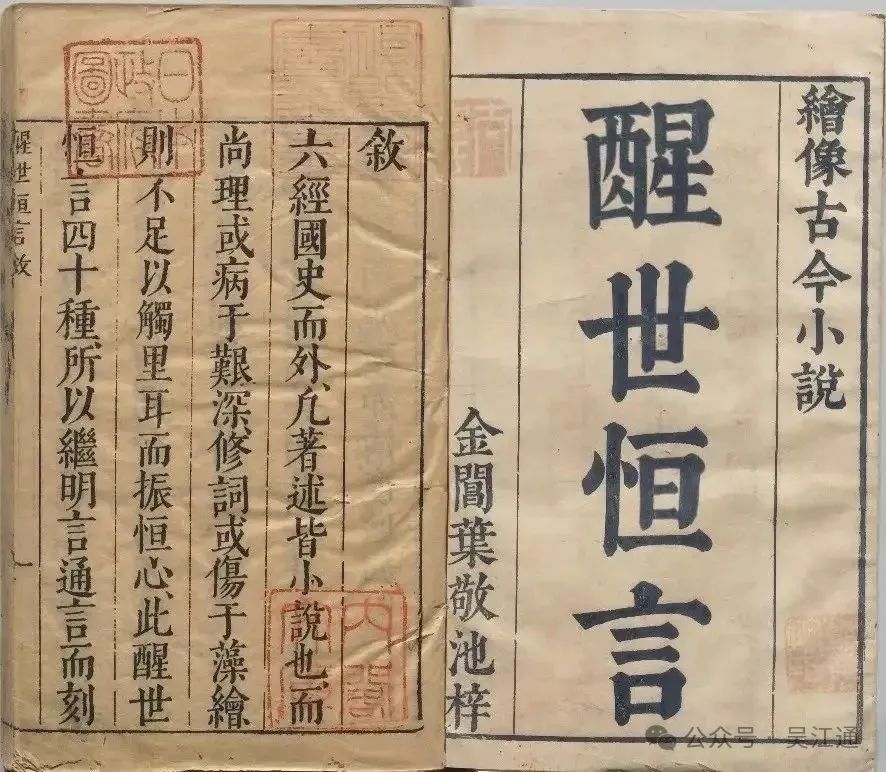 繪像古今小說
醒世恒言
金閶葉敬池梓
敘
六經國史而外凢著述皆小說也而
尚理或病于艱深修詞或傷于藻繪
則不足以觸里耳而振恒心此醒世
恒言四十種所以繼明言通言而刻
醒世恒言敘
一
日本
政府
圖書
內閣
公众号·吴江通